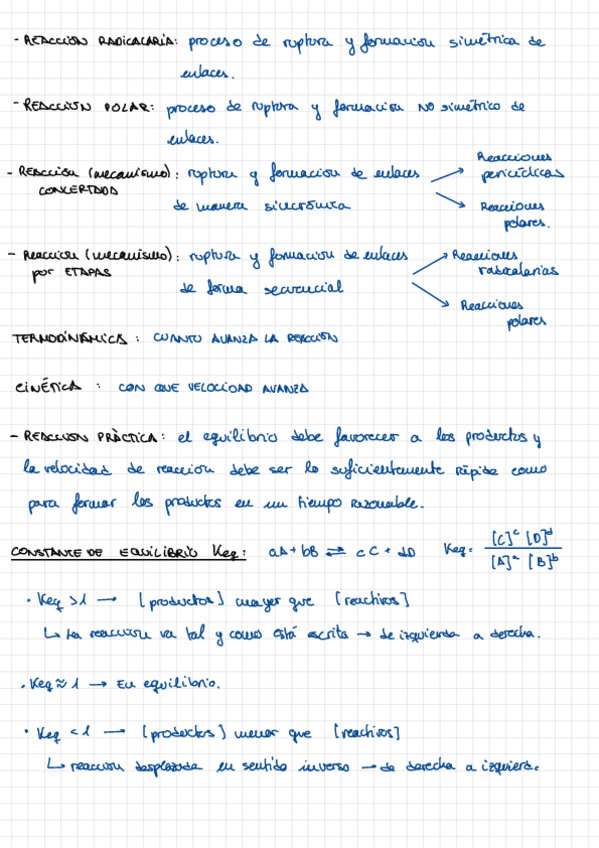 - REACCIÓN RADICALARIA: proceso de ruptura y formación simétrica de
enlaces.
- REACCIÓN POLAR: proceso de ruptura y formación NO simétrico de
enlaces.
- Reacción (mecanismo): ruptura y formación de enlaces → Reacciones pericíclicas
CONCERTADA
de manera sincrónica → Reacciones polares.
- Reacción (mecanismo): ruptura y formación de enlaces → Reacciones radicalarias
por ETAPAS
de forma secuencial → Reacciones polares
TERMODINÁMICA : CUANTO AVANZA LA REACCIÓN
CINÉTICA : CON QUE VELOCIDAD AVANZA
- REACCIÓN PRÀCTICA: el equilibrio debe favorecer a los productos y
la velocidad de reacción debe ser lo suficientemente rápida como
para formar los productos en un tiempo razonable.
CONSTANTE DE EQUILIBRIO Keq: aA + bB ⇄ cC + dD Keq = [C]ᶜ [D]ᵈ / [A]ᵃ [B]ᵇ
· Keq > 1 → [productos] mayor que [reactivos]
↳ La reacción va tal y como está escrita → de izquierda a derecha.
· Keq ≈ 1 → En equilibrio.
· Keq < 1 → [productos] menor que [reactivos]
↳ reacción desplazada en sentido inverso → de derecha a izquierd.